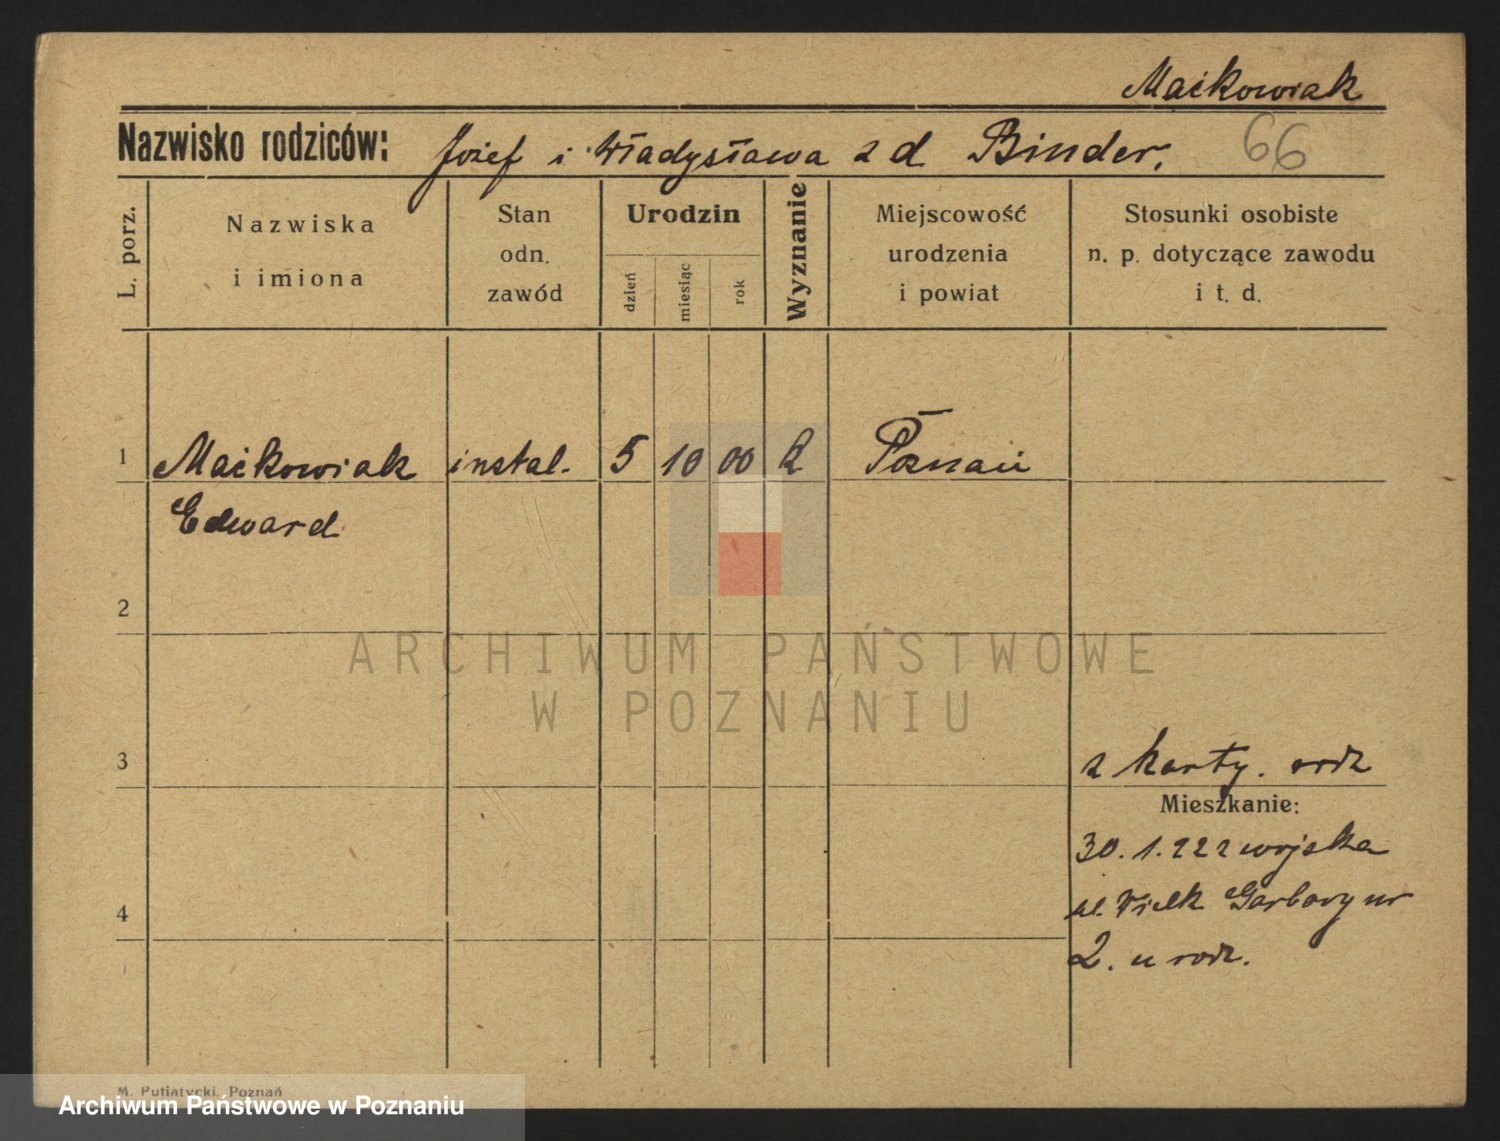 Maćkowiak
Nazwisko rodziców: Józef i Władysława z d Binder. 66
L. porz.
Nazwiska
i imiona
Stan
odn.
zawód
Urodzin
dzień
miesiąc
rok
Wyznanie
Miejscowość
urodzenia
i powiat
Stosunki osobiste
n. p. dotyczące zawodu
i t. d.
1 Maćkowiak instal. 5 10 00 Poznań
Edward
2
ARCHIWUM PAŃSTWOWE
W POZNANIU
3
z karty. rodz
Mieszkanie:
30.1.22 z wojska
4
ul. Wielk Garbary nr
2. u rodz.
M. Putiatycki, Poznań
Archiwum Państwowe w Poznaniu